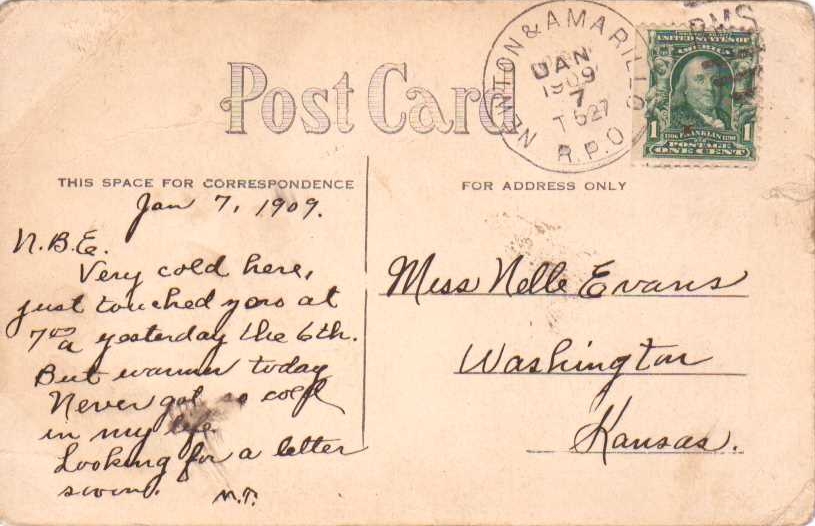 Post Card
NEWTON & AMARILLO
JAN
1909
7
T 527
R.P.O
RMS
UNITED STATES OF
AMERICA
1 FRANKLIN 1
POSTAGE
ONE CENT
THIS SPACE FOR CORRESPONDENCE
FOR ADDRESS ONLY
Jan 7, 1909.
N.B.E.
Very cold here,
just touched zero at
7 a yesterday the 6th.
But warmer today
Never got so cold
in my life.
Looking for a letter
swoon.
M.T.
Miss Nelle Evans
Washington
Kansas.